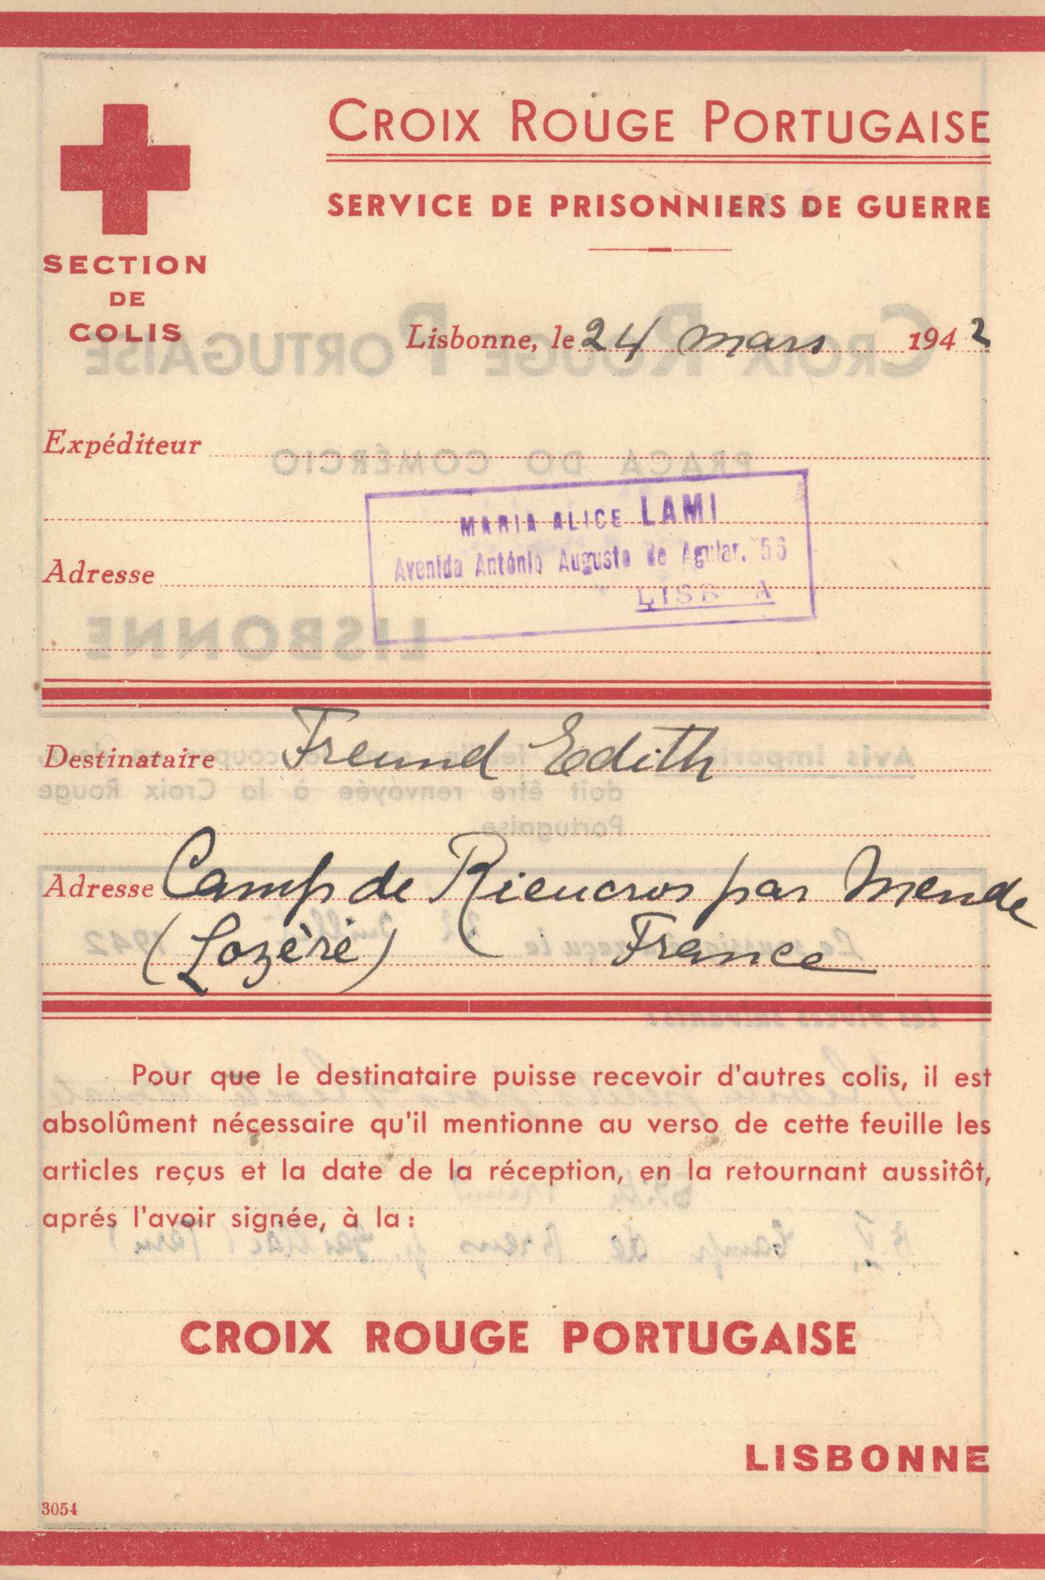 CROIX ROUGE PORTUGAISE
SERVICE DE PRISONNIERS DE GUERRE
SECTION
DE
COLIS
Lisbonne, le 24 mars 1942
Expéditeur
MARIA ALICE LAMI
Avenida António Augusto de Aguiar, 56
Adresse
Destinataire Freund Edith
Adresse Camp de Rieucros par Mende
(Lozère) France
Pour que le destinataire puisse recevoir d'autres colis, il est
absolûment nécessaire qu'il mentionne au verso de cette feuille les
articles reçus et la date de la réception, en la retournant aussitôt,
aprés l'avoir signée, à la:
CROIX ROUGE PORTUGAISE
LISBONNE
3054